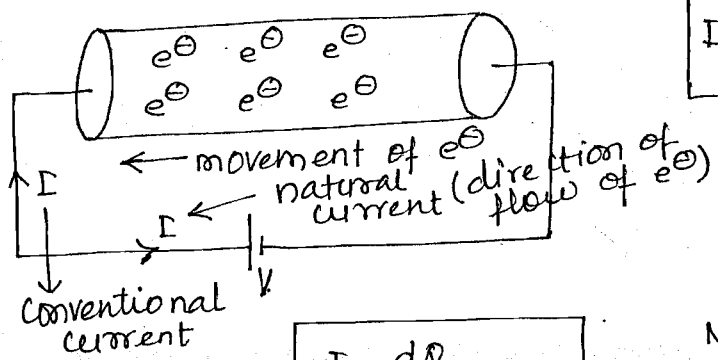 e⊖ e⊖ e⊖
e⊖ e⊖ e⊖
I
← movement of e⊖
I ← natural current (direction of flow of e⊖)
I
V
conventional
current
dQ